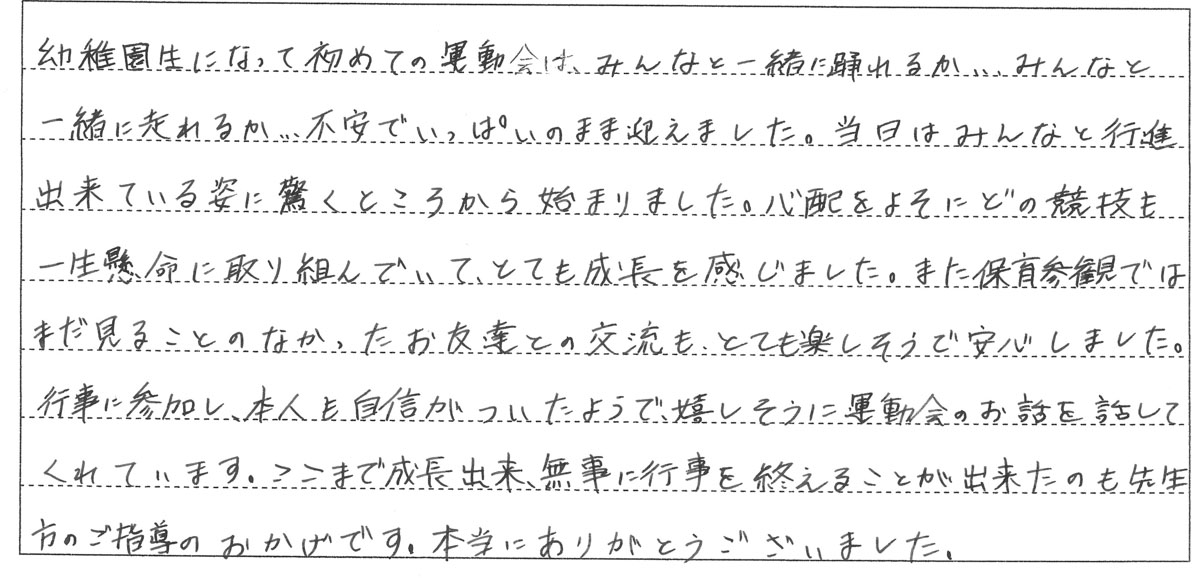 幼稚園生になって初めての運動会は、みんなと一緒に踊れるか…みんなと
一緒に走れるか…不安でいっぱいのまま迎えました。当日はみんなと行進
出来ている姿に驚くところから始まりました。心配をよそにどの競技も
一生懸命に取り組んでいて、とても成長を感じました。また保育参観では
まだ見ることのなかったお友達との交流も、とても楽しそうで安心しました。
行事に参加し、本人も自信がついたようで、嬉しそうに運動会のお話を話して
くれています。ここまで成長出来、無事に行事を終えることが出来たのも先生
方のご指導のおかげです。本当にありがとうございました。